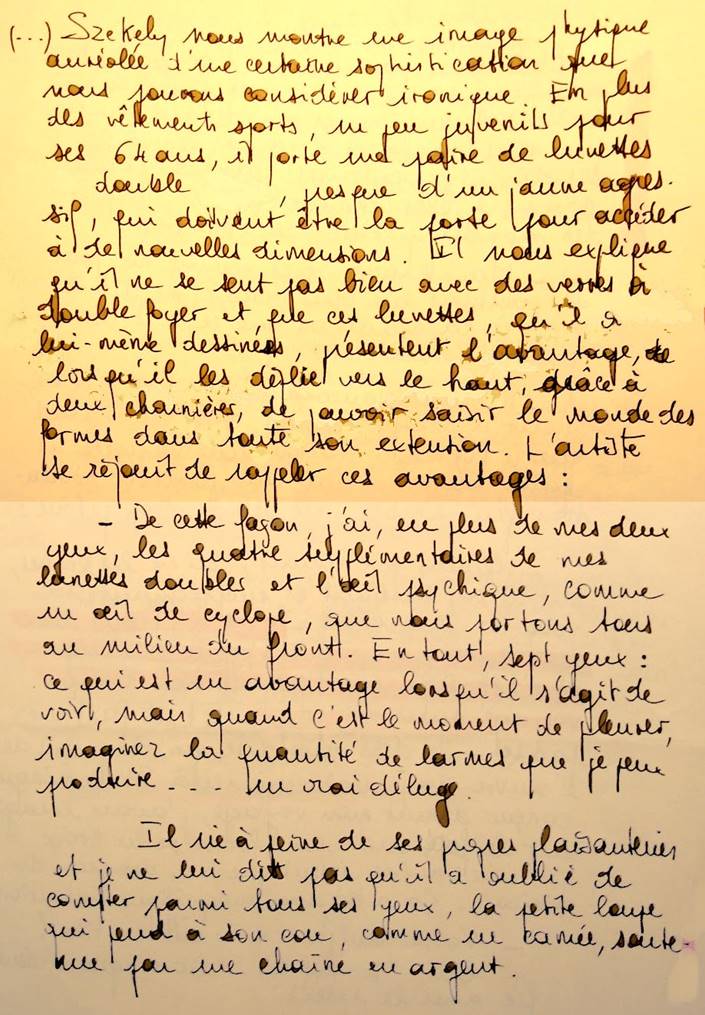 (...) Szekely nous montre une image physique
auréolée d'une certaine sophistication que
nous pouvons considérer ironique. En plus
des vêtements sports, un peu juvenils pour
ses 64 ans, il porte une paire de lunettes
double , presque d'un jaune agres-
sif, qui doivent être la porte pour accéder
à de nouvelles dimensions. Il nous explique
qu'il ne se sent pas bien avec des verres à
double foyer et que ces lunettes, qu'il a
lui-même dessinées, présentent l'avantage, de
lorsqu'il les déplie vers le haut, grâce à
deux charnières, de pouvoir saisir le monde des
formes dans toute son extension. L'artiste
se réjouit de rappeler ces avantages :
- De cette façon, j'ai, en plus de mes deux
yeux, les quatre supplémentaires de mes
lunettes doubles et l'œil psychique, comme
un œil de cyclope, que nous portons tous
au milieu du front. En tout, sept yeux :
ce qui est un avantage lorsqu'il s'agit de
voir, mais quand c'est le moment de pleurer,
imaginez la quantité de larmes que je peux
produire .... un vrai déluge.
Il rie à peine de ses propres plaisanteries
et je ne lui dit pas qu'il a oublié de
compter parmi tous ses yeux, la petite loupe
qui pend à son cou, comme un camée, soute-
nue par une chaîne en argent.